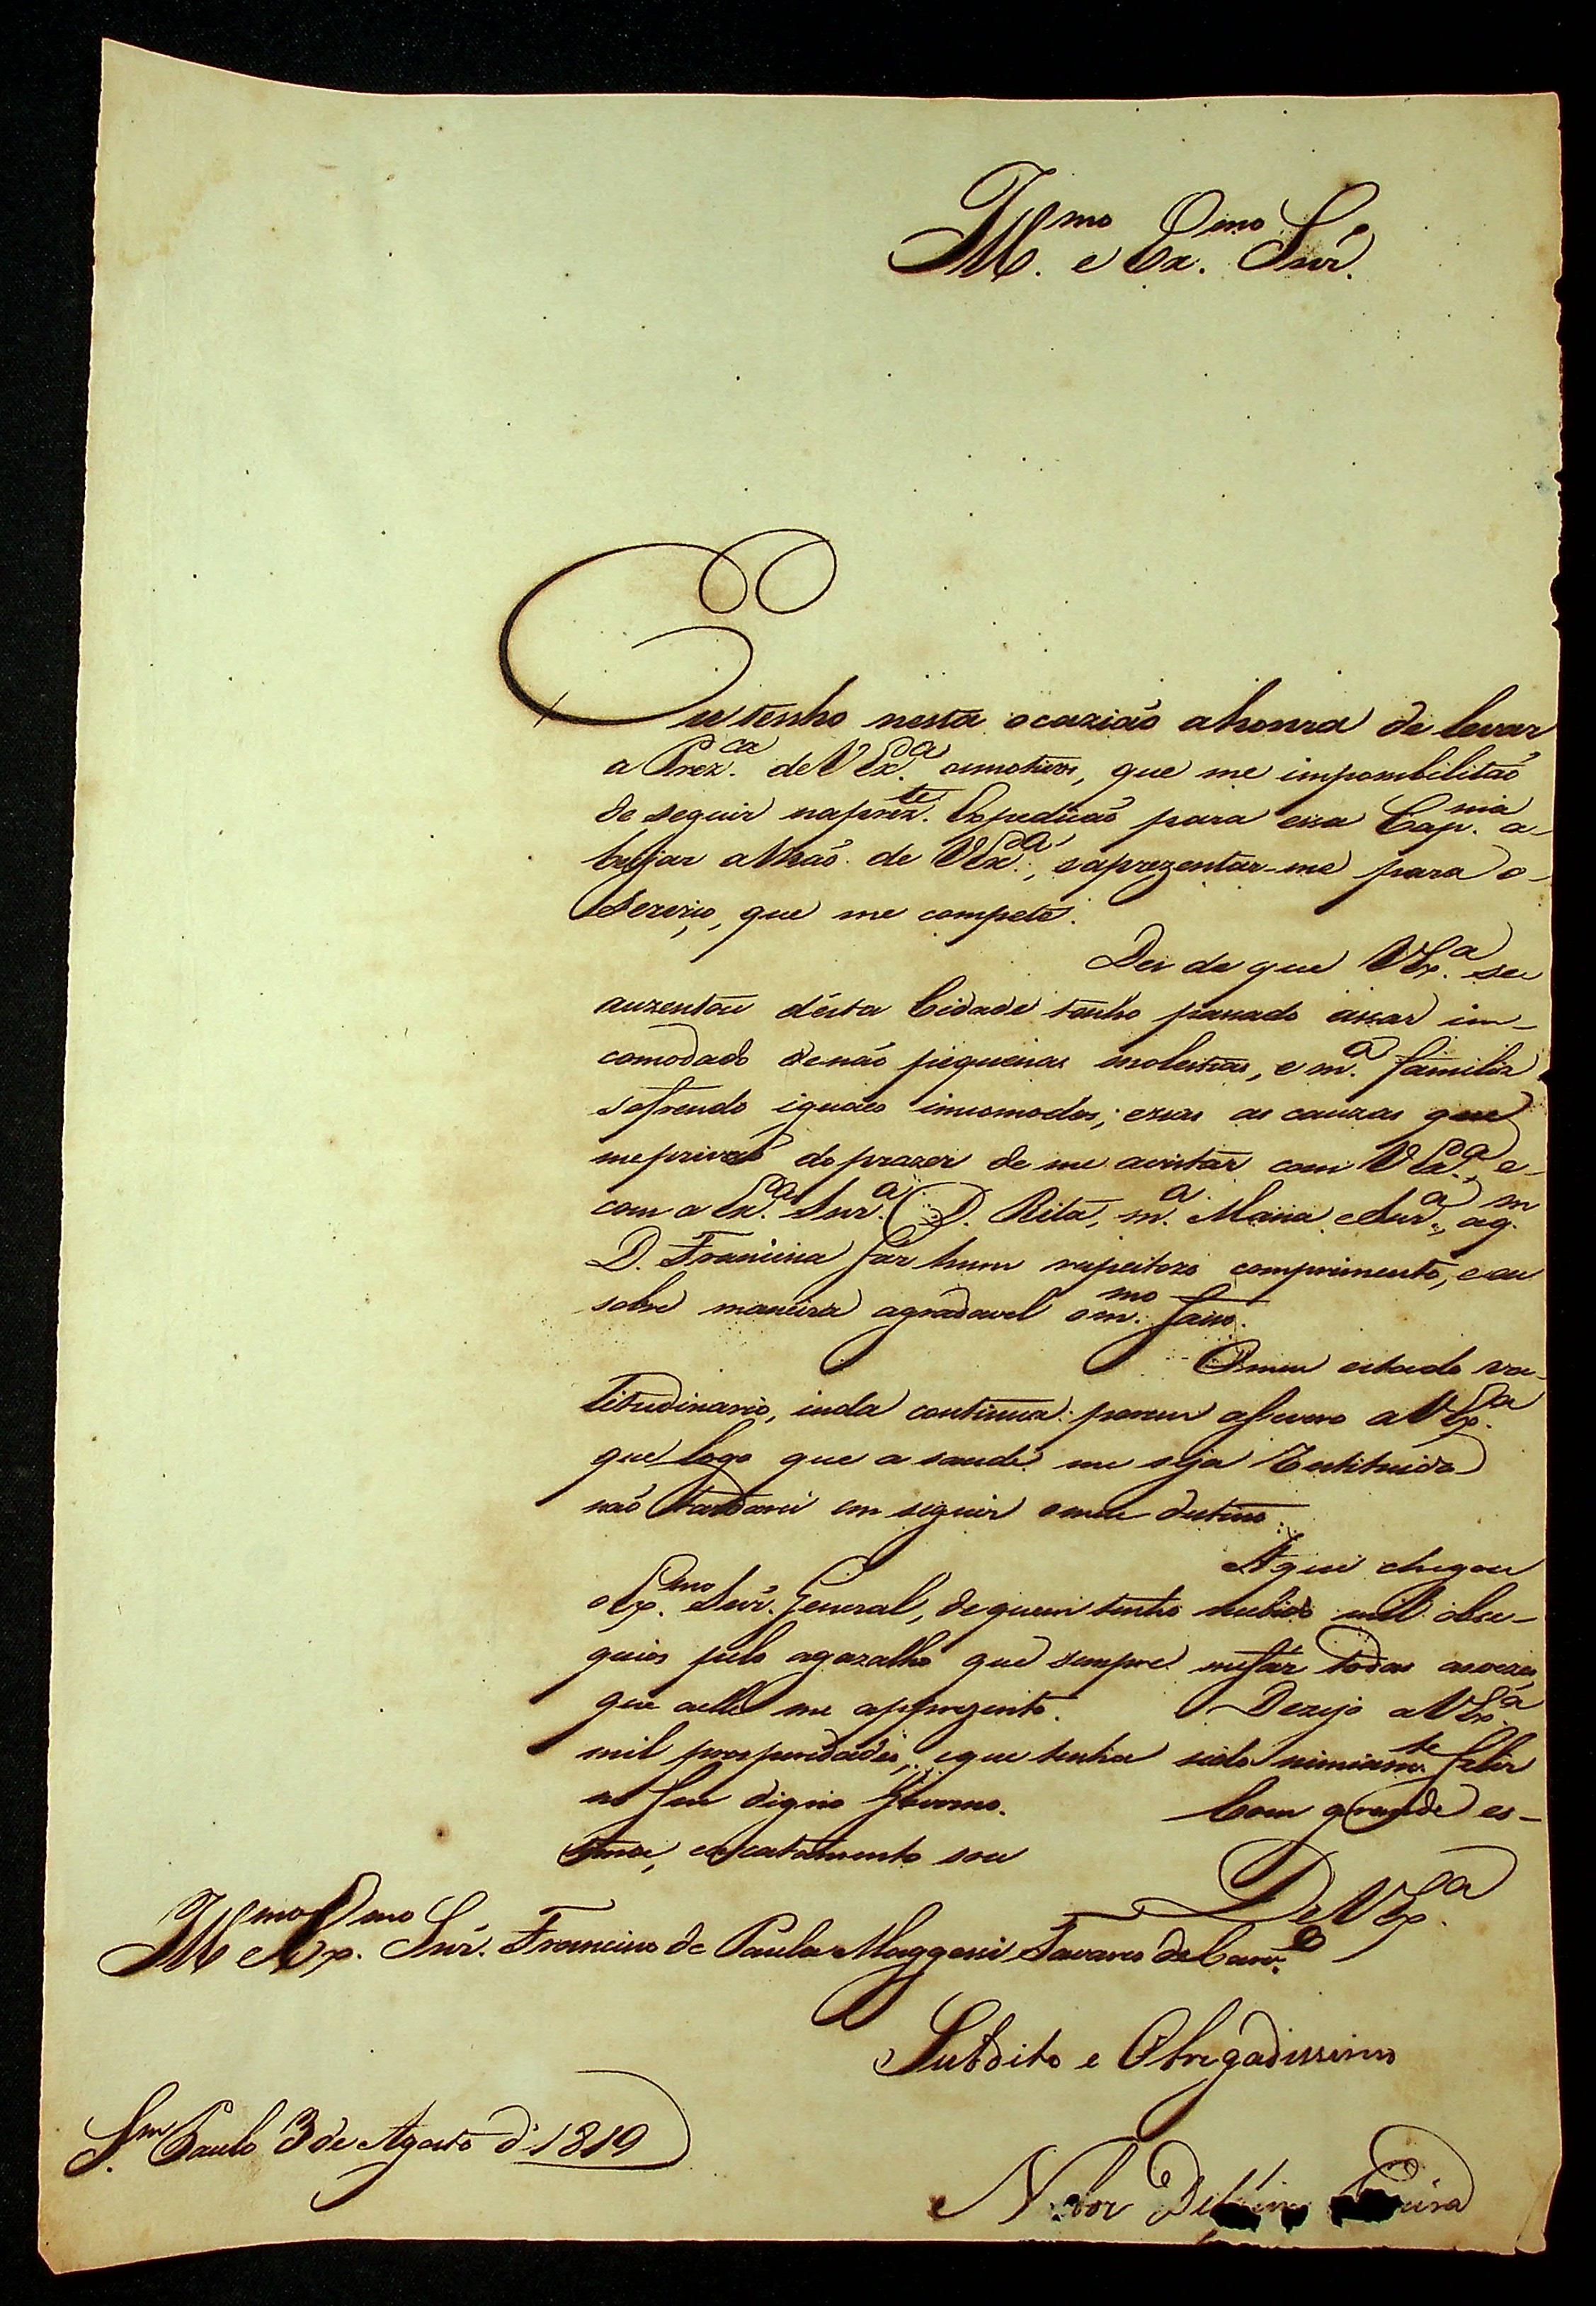 Ill.mo e Ex.mo Snr.
Eu tenho nesta ocazião a honra de levar
a Prez.ca de V Ex.ca os motivos, que me impossibilitão
de seguir na prez.te Expedicão para essa Cap.nia a
beijar a Mão de V Ex.ca, e aprezentar-me para o
Serviço, que me compete.
Des de que V Ex.a se
auzentou désta Cidade tenho passado assás in-
comodado de não piquenas molestias, e m.a familia
sofrendo iguaes incomodos; essas as cauzas que
me privão do prazer de me avistar com V Ex.ca, e
com a Ex.ca Snr.a D. Rita, m.a Maria e Snr.a, a q.m
D. Francisca faz hum respeitozo comprimento, e eu
sobre maneira agradavel o m.mo faço.
O meu estado va-
litudinario, inda continúa: porem assevero a V Ex.a
que logo que a saude me seja Restituida
não tardarei em seguir o meu destino.
Aqui chegou
o Ex.mo Snr. General, de quem tenho recebido mil obse-
quios pelo agazalho que sempre me faz todas as vezes
que a elle me apprezento. Dezejo a V Ex.a
mil prosperidades, e que tenha sido nimiam.te feliz
no seu digno Governo. Com grande es-
tima, e acatamento sou
De V Ex.a
Ill.mo e Ex.mo Snr. Francisco de Paula Maggessi Tavares de Carv.o
Subdito e Obrigadissimo
S.m Paulo 3 de Agosto d' 1819
Nabor Delfim